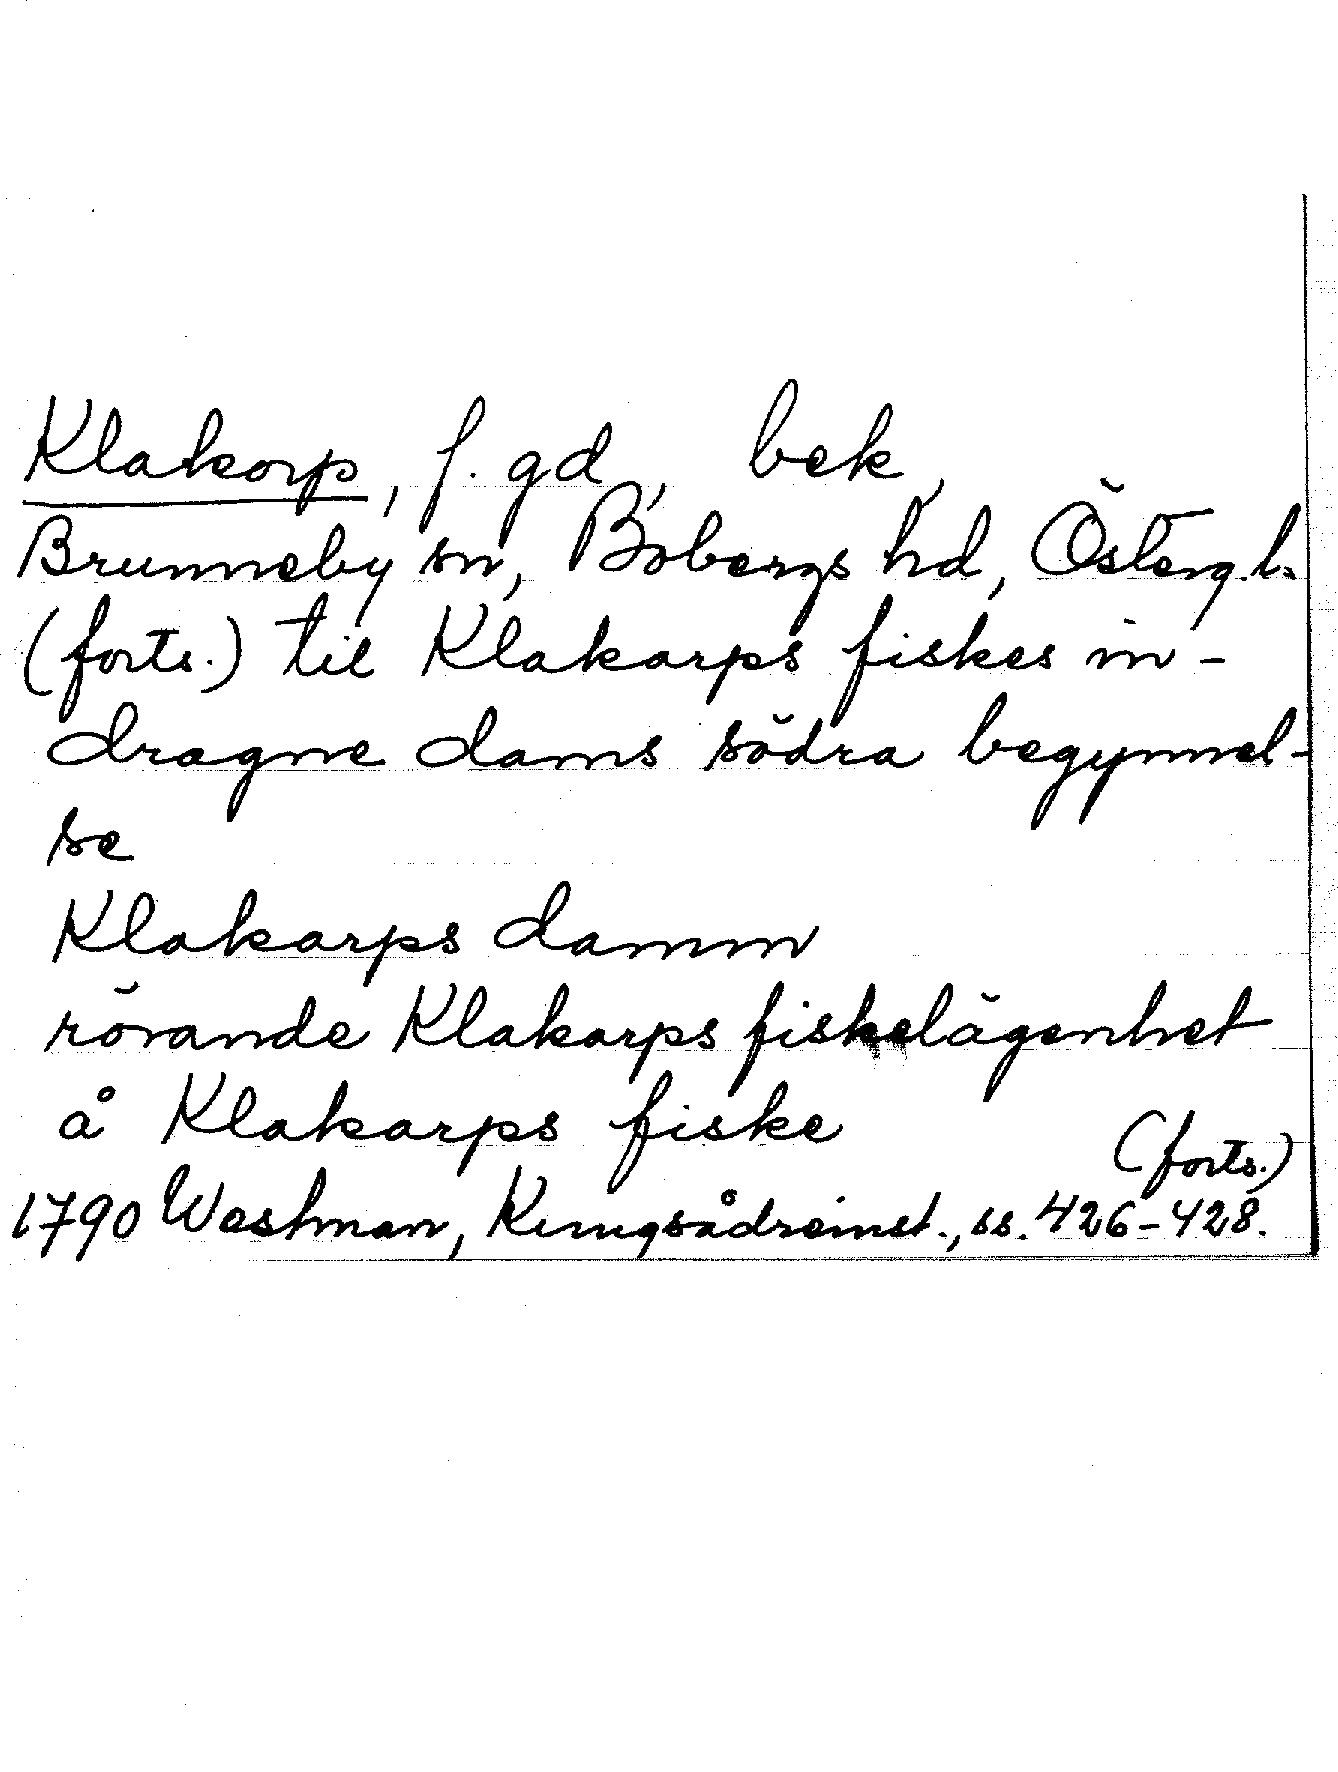 Klakorp, f. gd, bek,
Brunneby sn, Bobergs hd, Österg.l.
(forts.) til Klakarps fiskes in-
dragne dams södra begynnel-
se
Klakarps damm
rörande Klakarps fiskelägenhet
å Klakarps fiske
(forts.)
1790 Westman, Kungsådreinst., ss. 426-428.